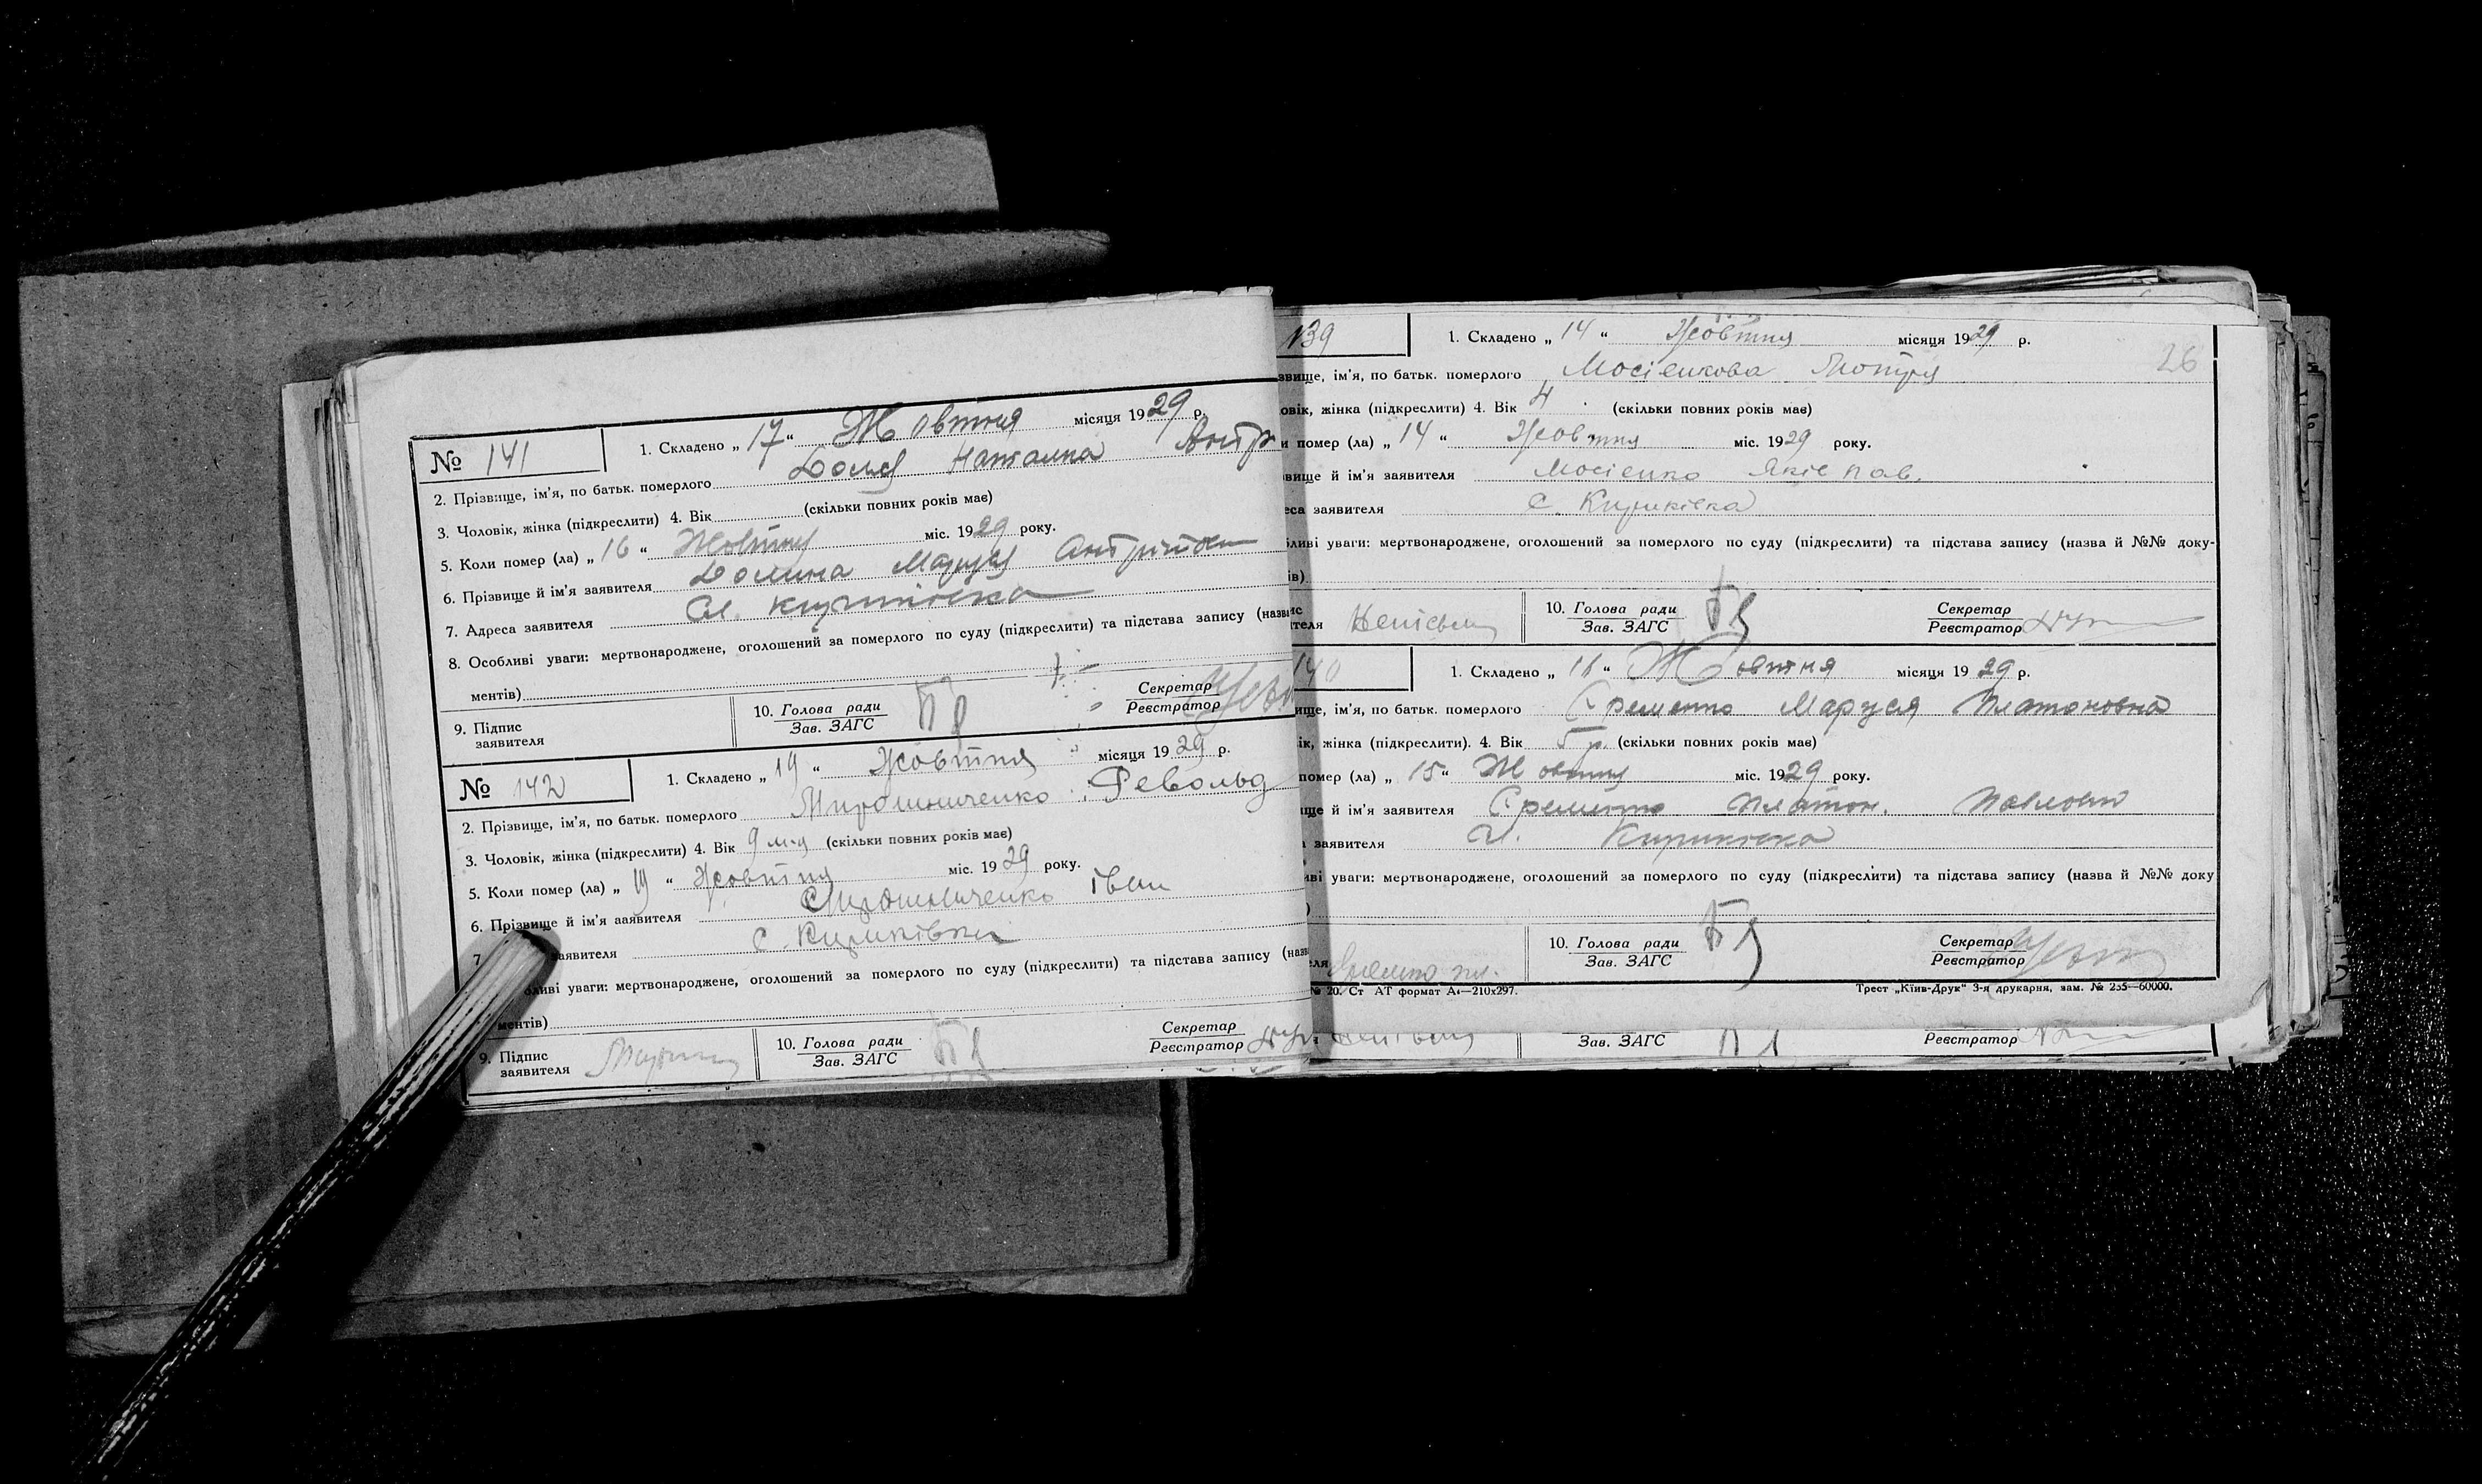 № 141
1. Складено „ 17 “ Жовтня місяця 1929 р.
2. Прізвище, ім'я, по батьк. померлого Наталка
3. Чоловік, жінка (підкреслити) 4. Вік (скільки повних років має)
5. Коли помер (ла) „ 16 “ Жовтня міс. 1929 року.
6. Прізвище й ім'я заявителя Маруся
7. Адреса заявителя
8. Особливі уваги: мертвонароджене, оголошений за померлого по суду (підкреслити) та підстава запису (назв
ментів)
9. Підпис заявителя
10. Голова ради
Зав. ЗАГС
Секретар
Реєстратор
№ 142
1. Складено „ 19 “ Жовтня місяця 1929 р.
2. Прізвище, ім'я, по батьк. померлого Мирошниченко Револьд
3. Чоловік, жінка (підкреслити) 4. Вік 9 м-ц (скільки повних років має)
5. Коли помер (ла) „ 19 “ Жовтня міс. 1929 року.
6. Прізвище й ім'я заявителя Мирошниченко Іван
7 заявителя с. Кириківка
ливі уваги: мертвонароджене, оголошений за померлого по суду (підкреслити) та підстава запису (наз
ментів)
9. Підпис заявителя
10. Голова ради
Зав. ЗАГС
Секретар
Реєстратор
139
1. Складено „ 14 “ Жовтня місяця 1929 р.
26
звище, ім'я, по батьк. померлого Мосієнкова Мотря
овік, жінка (підкреслити) 4. Вік 4 (скільки повних років має)
и помер (ла) „ 14 “ Жовтня міс. 1929 року.
вище й ім'я заявителя Мосієнко Яків пав.
еса заявителя с. Кириківка
бливі уваги: мертвонароджене, оголошений за померлого по суду (підкреслити) та підстава запису (назва й №№ доку-
ів)
ителя
10. Голова ради
Зав. ЗАГС
Секретар
Реєстратор
140
1. Складено „ 16 “ Жовтня місяця 1929 р.
ище, ім'я, по батьк. померлого Єременко Маруся Платоновна
ік, жінка (підкреслити). 4. Вік 5 р. (скільки повних років має)
помер (ла) „ 15 “ Жовтня міс. 1929 року.
ще й ім'я заявителя Єременко Платон. Павлович
заявителя Кириківка
иві уваги: мертвонароджене, оголошений за померлого по суду (підкреслити) та підстава запису (назва й №№ доку
)
еля
10. Голова ради
Зав. ЗАГС
Секретар
Реєстратор
№ 20. Ст АТ формат А4—210x297.
Трест „Київ-Друк“ 3-я друкарня, зам. № 235—60000.
Зав. ЗАГС
Реєстратор